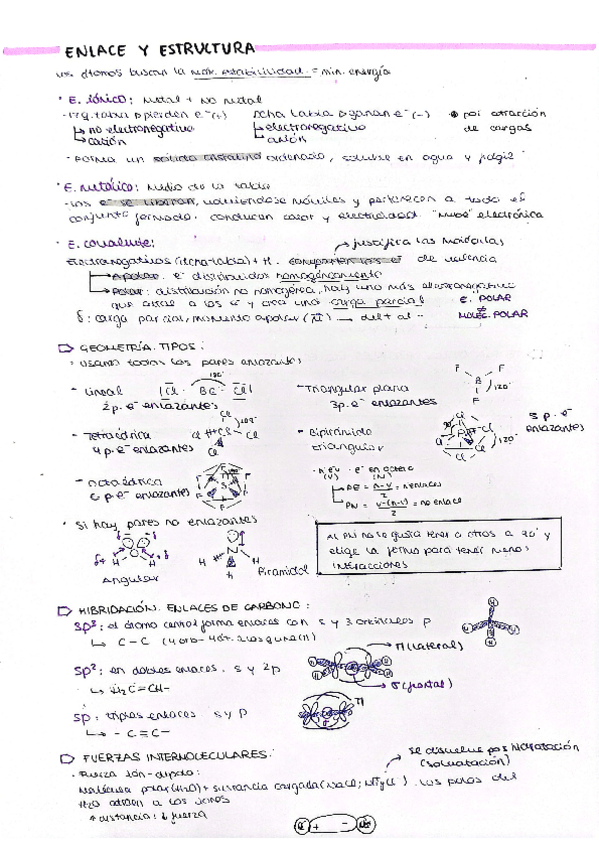 ENLACE Y ESTRUCTURA
los átomos buscan la máx. estabilidad = min. energía
· E. iónico: metal + no metal
- izq. tabla pierden e⁻(+) dcha tabla ganan e⁻(-) por atracción
↳ no electronegativo ↳ electronegativo de cargas
↳ catión ↳ anión
- Forma un sólido cristalino ordenado, soluble en agua y frágil
· E. metálico: medio de la tabla
- los e⁻ se liberan, volviéndose móviles y pertenecen a todo el
conjunto formado. conducen calor y electricidad. "nube" electrónica
· E. covalente: → justifica las moléculas
Electronegativos (dcha tabla) + H. comparten los e⁻ de valencia
→ Apolar: e⁻ distribuidos homogéneamente
→ Polar: distribución no homogénea, hay uno más electronegativo
que atrae a los e⁻ y crea una carga parcial E. POLAR
δ: carga parcial, momento (μ) → del + al - ≠ MOLÉC. POLAR
GEOMETRÍA. TIPOS:
· usamos todos los pares enlazantes
- Lineal |Cl - Be - Cl| 180°
2 p. e⁻ enlazantes
- Triangular plana F F B F 120°
3 p. e⁻ enlazantes
- Tetraédrica Cl Cl Cl 109°
4 p. e⁻ enlazantes
- Bipirámide Cl Cl P Cl Cl 90° 120° 5 p. e⁻
triangular enlazantes
- octaédrica F F F F F F S
6 p. e⁻ enlazantes
· n e⁻ v (V) · e⁻ en octeto (N)
→ PE = N-V/2 = n enlaces
→ PN = V-(N-V)/2 = no enlace
· Si hay pares no enlazantes
δ+ H O H δ+ H N H H
Angular Piramidal
Al PN no le gusta tener a otros a 90° y
elige la forma para tener menos
interacciones
HIBRIDACIÓN. ENLACES DE CARBONO:
sp³: el átomo central forma enlaces con s y 3 orbitales p
↳ C - C
sp²: en dobles enlaces. s y 2p → π (lateral)
↳ H₂C = CH- → σ (frontal)
sp: triples enlaces s y p π
↳ - C ≡ C -
FUERZAS INTERMOLECULARES: → se disuelve por hidratación
(solvatación)
· Fuerza ión-dipolo:
Molécula polar (H₂O) + sustancia cargada (NaCl; NH₄Cl). Los polos del
H₂O atraen a los iones
↑ distancia: ↓ fuerza
+ -